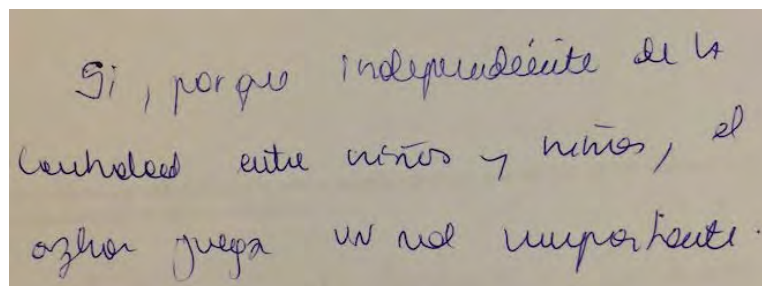 Si, porque independiente de la
cantidad entre niños y niñas, el
azhar juega un rol importante.